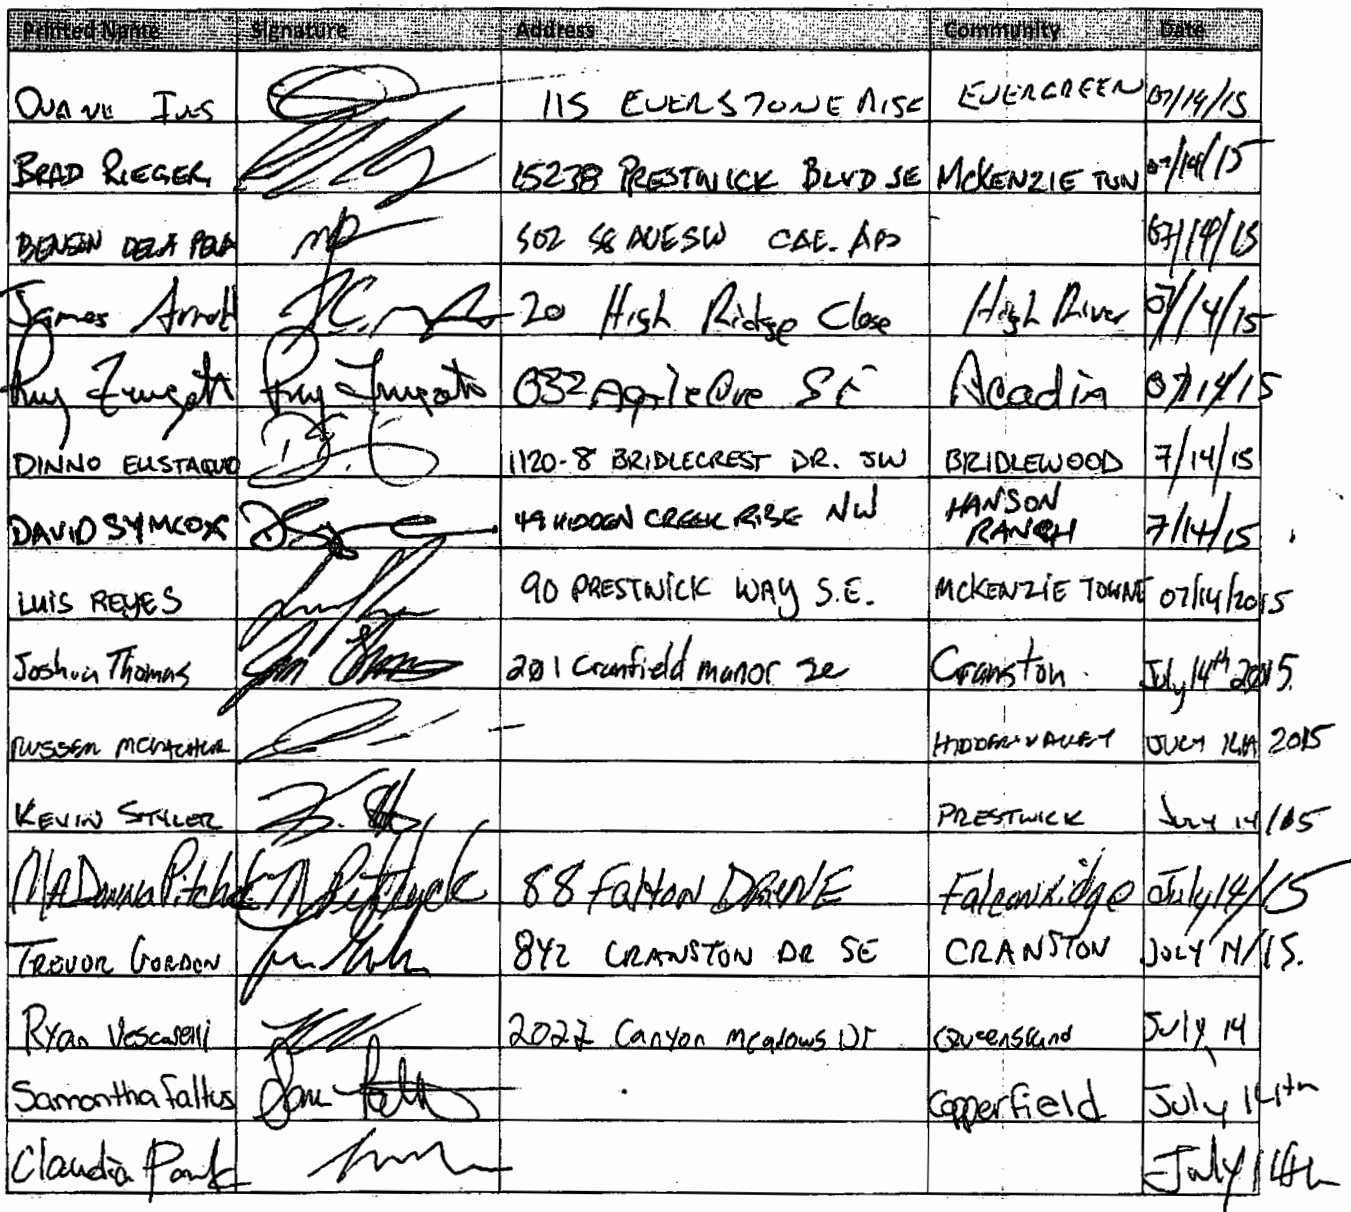 Printed Name Signature Address Community Date
DUANE IVES 115 EVERSTONE RISE EVERGREEN 07/14/15
BRAD RIEGER 15238 PRESTWICK BLVD SE MCKENZIE TWN 07/14/15
BENSEN DELA PENA 502 58 AVE SW 07/14/15
James Arnott 20 High Ridge Close High River 07/14/15
832 SE Acadia 07/14/15
DINNO EUSTAQUIO 1120-8 BRIDLECREST DR. SW BRIDLEWOOD 7/14/15
DAVID SYMCOX 49 HIDDEN CREEK RISE NW HANSON RANCH 7/14/15
LUIS REYES 90 PRESTWICK WAY S.E. MCKENZIE TOWNE 07/14/2015
Joshua Thomas 201 Cranfield manor se Cranston July 14th 2015.
HIDDEN VALLEY JULY 14th 2015
KEVIN STYLER PRESTWICK July 14/15
MADonna 88 Falton DR NE Falconridge July 14/15
TREVOR GORDON 842 CRANSTON DR SE CRANSTON JULY 14/15.
Ryan 2022 Canyon Meadows Dr Queensland July 14
Samantha Faltus Sam Copperfield July 14th
Claudia July 14th